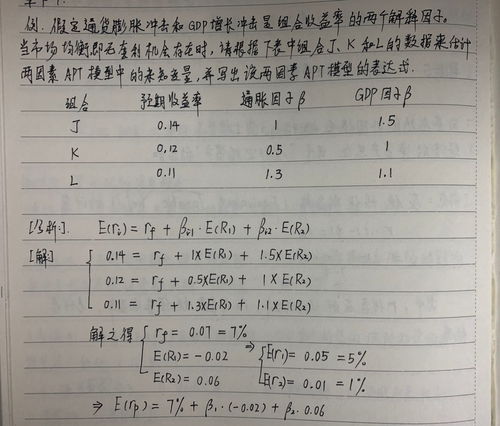 例. 假定通货膨胀冲击和GDP增长冲击是组合收益率的两个解释因子。
当市场均衡即无套利机会存在时,请根据下表中组合J、K和L的数据来估计
两因素APT模型中的未知变量,并写出该两因素APT模型的表达式.
组合 预期收益率 通胀因子β GDP因子β
J 0.14 1 1.5
K 0.12 0.5 1
L 0.11 1.3 1.1
[分析]. E(ri) = rf + βi1·E(R1) + βi2·E(R2)
[解] { 0.14 = rf + 1×E(R1) + 1.5×E(R2)
0.12 = rf + 0.5×E(R1) + 1×E(R2)
0.11 = rf + 1.3×E(R1) + 1.1×E(R2)
解之得 { rf = 0.07 = 7%
E(R1) = -0.02 ⇒ { E(r1) = 0.05 = 5%
E(R2) = 0.06 E(r2) = 0.01 = 1%
⇒ E(rp) = 7% + β1·(-0.02) + β2·0.06